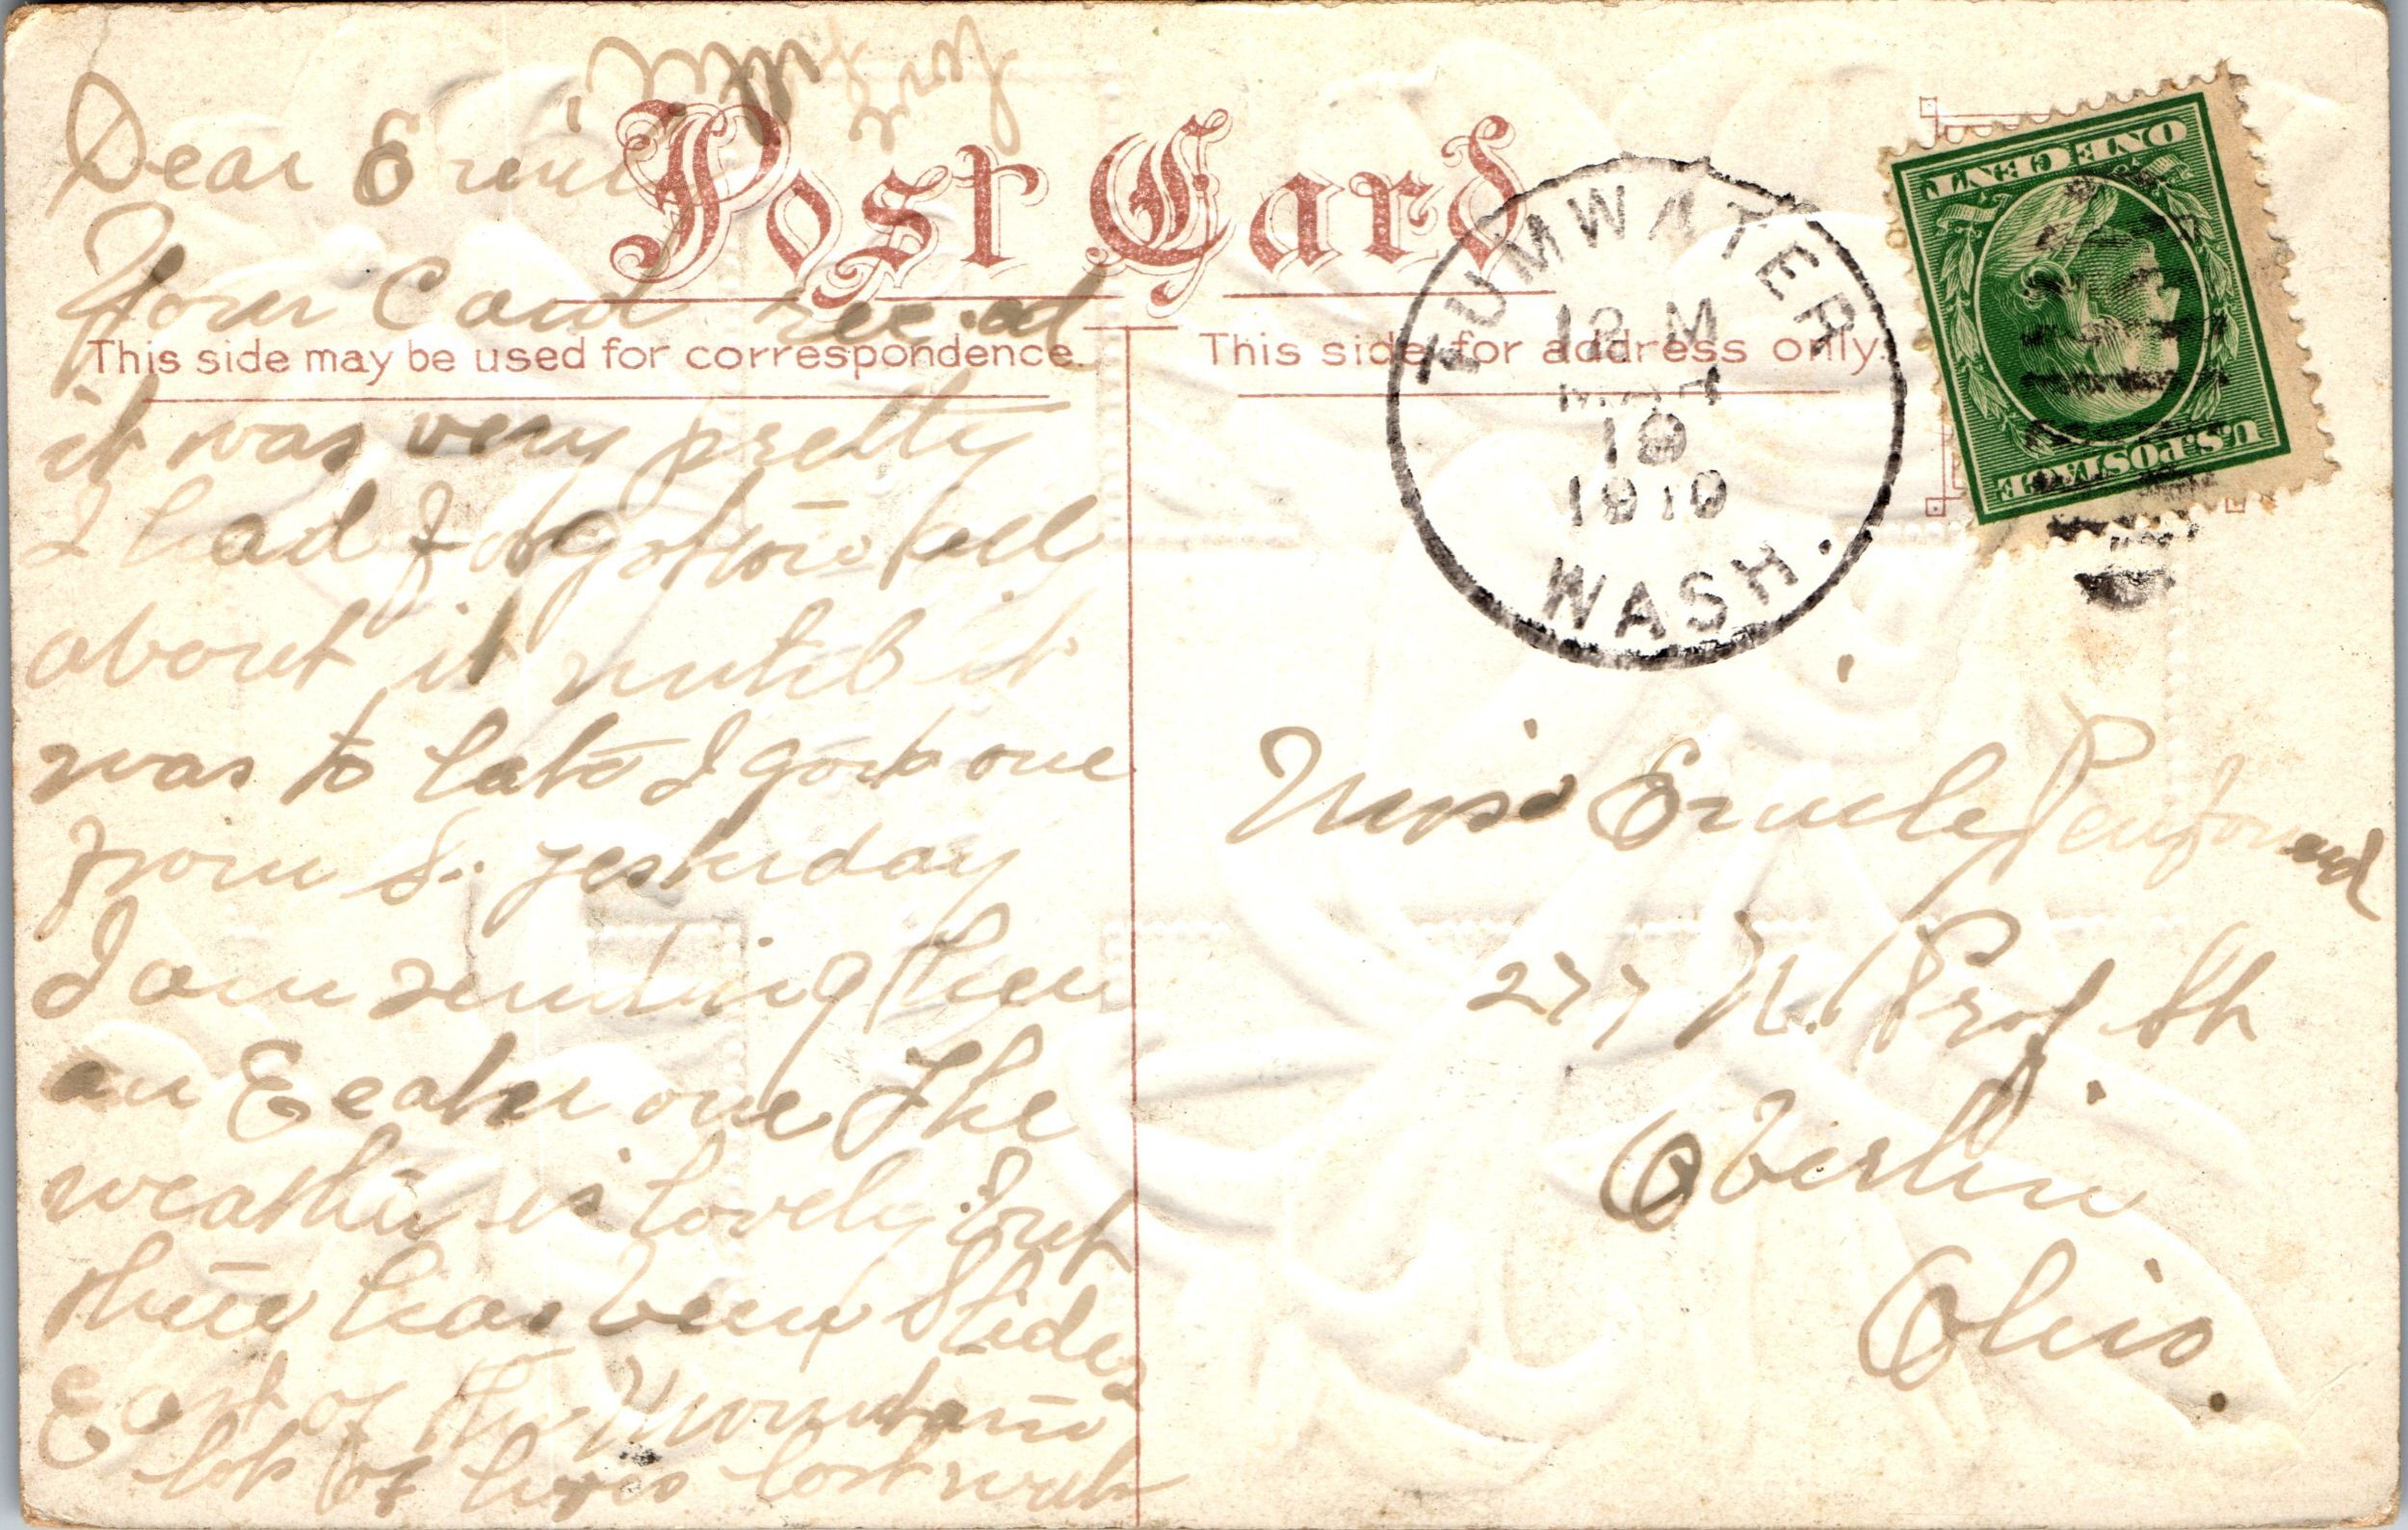 Post Card
This side may be used for correspondence.
This side for address only.
TUMWATER
12 M
MAR
19
1910
WASH.
ONE CENT
U.S. POSTAGE
Dear
Your Card rec.d
it was very pretty
I had forgotten all
about it until it
was to late I got one
from S. yesterday
I am sending them
an Eeaster one The
weather is lovely. But
there has been Slides
East of the Mountains
lots of lives lost
Miss
277 N. Prof St
Oberlin
Ohio.